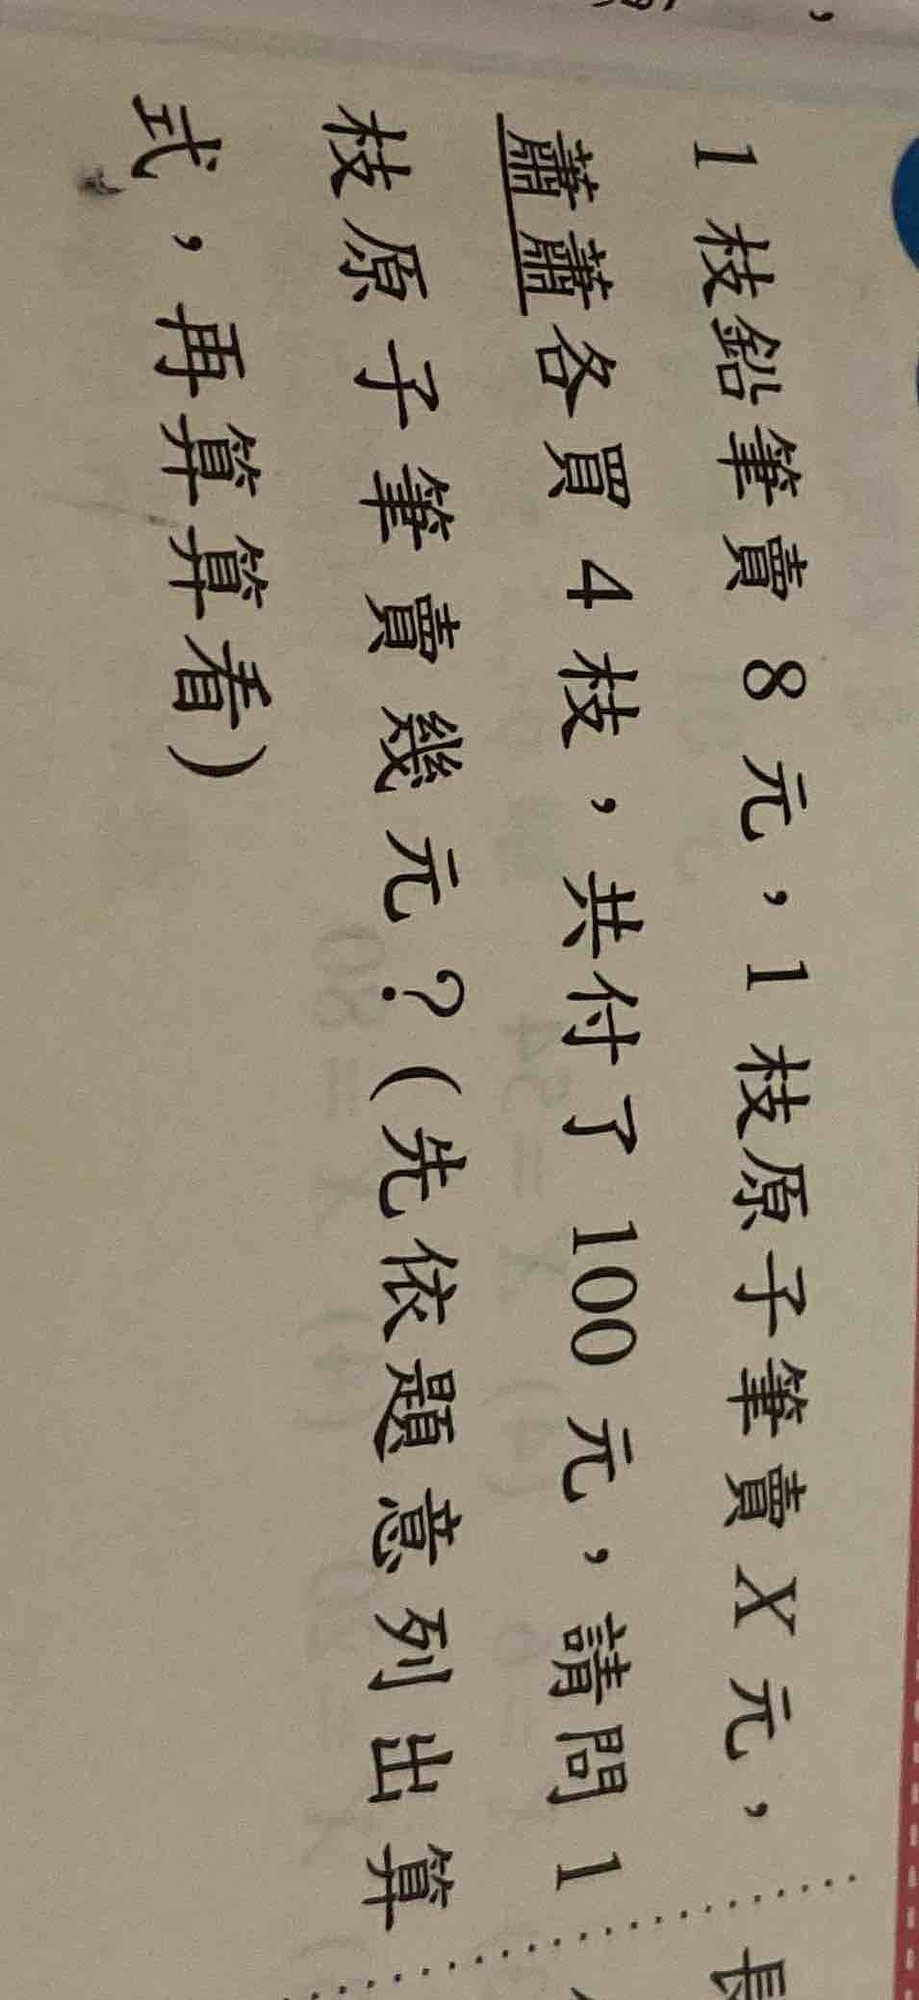 1 枝鉛筆賣 8 元，1 枝原子筆賣 X 元，
蕭蕭各買 4 枝，共付了 100 元，請問 1
枝原子筆賣幾元？(先依題意列出算
式，再算算看)
長